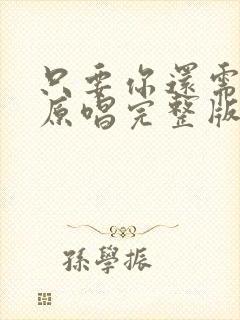 只要你還需
原唱完整版
孫學振